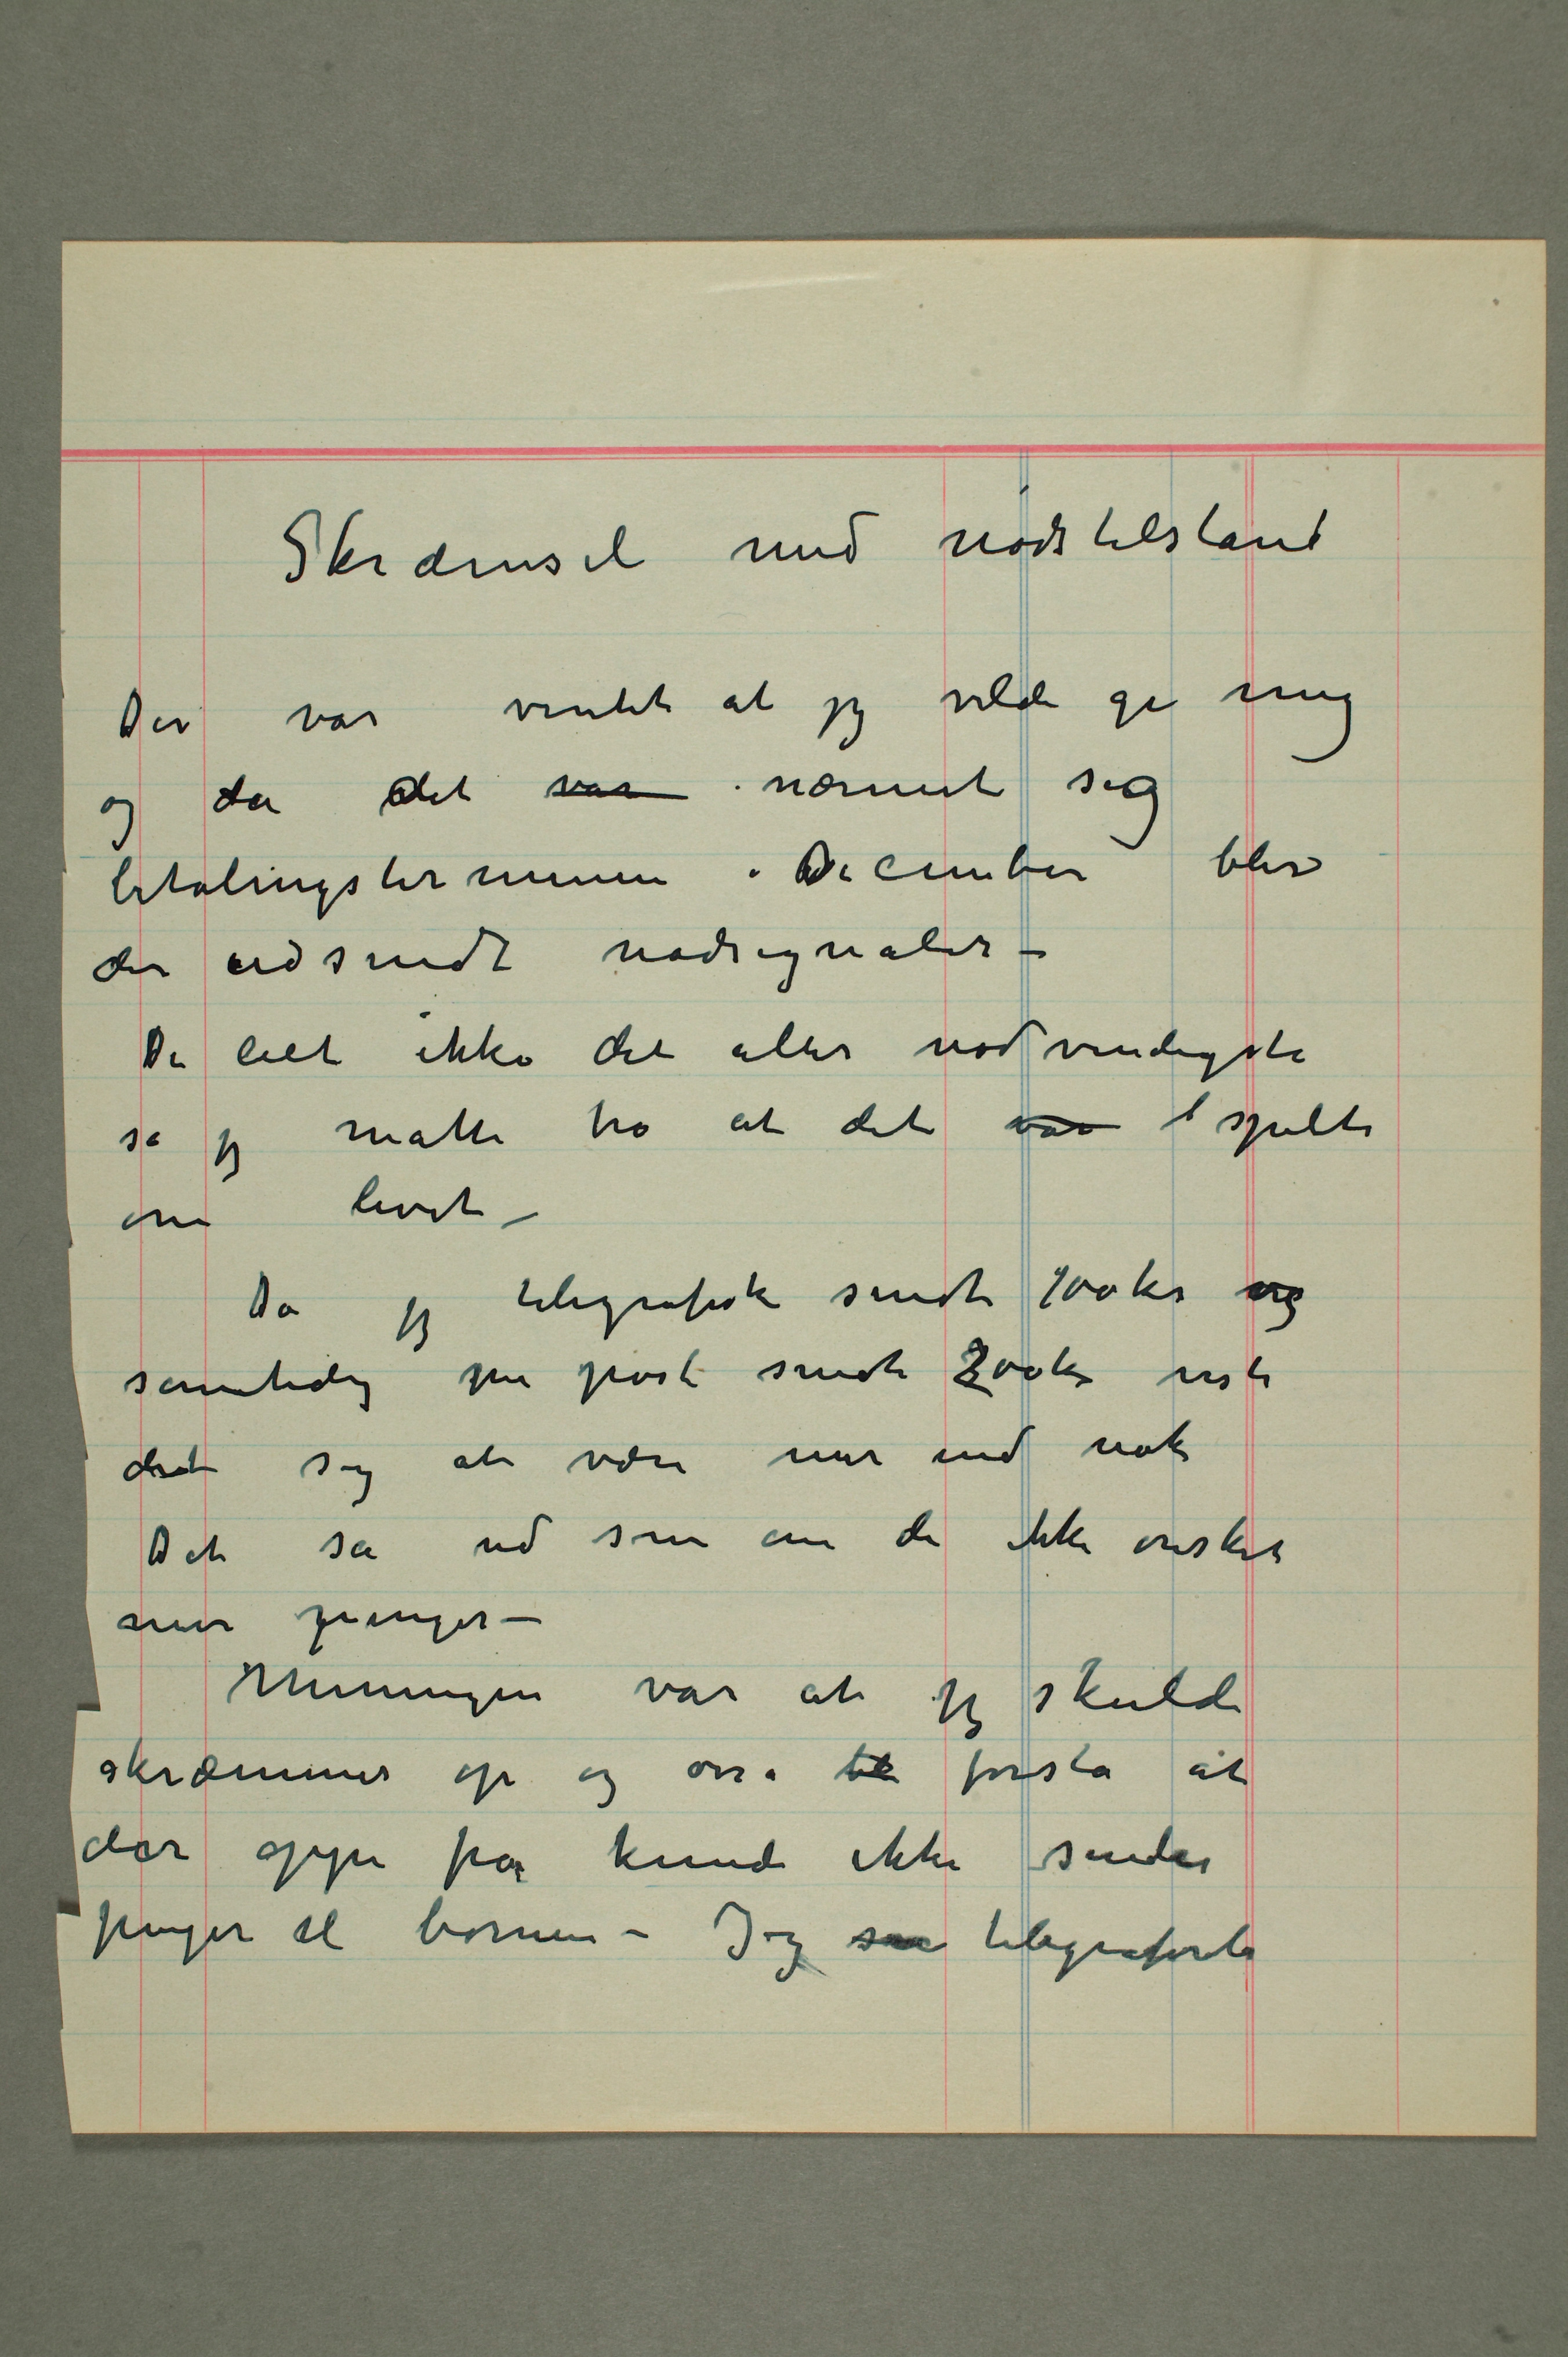 Skræmsel med nødstilstand
Der var ventet at jeg vilde gi mig
og da det var nærmet sig
betalingsterminen i December blev
der udsendt nødsignaler –
De leet ikke det aller nødvendigste
så jeg måtte tro at det var spilte
om livet –
Da jeg telegrafisk sendte 100 kr og
samtidig per post sendte 200 kr viste
det sig at være mer end nok
Det så ud som om de ikke ønsket
mer penger –
Meningen var at jeg skulde
skræmmes op og forstå at
der oppe fra kunde ikke sendes
penger til børnene – Jeg telegraferte